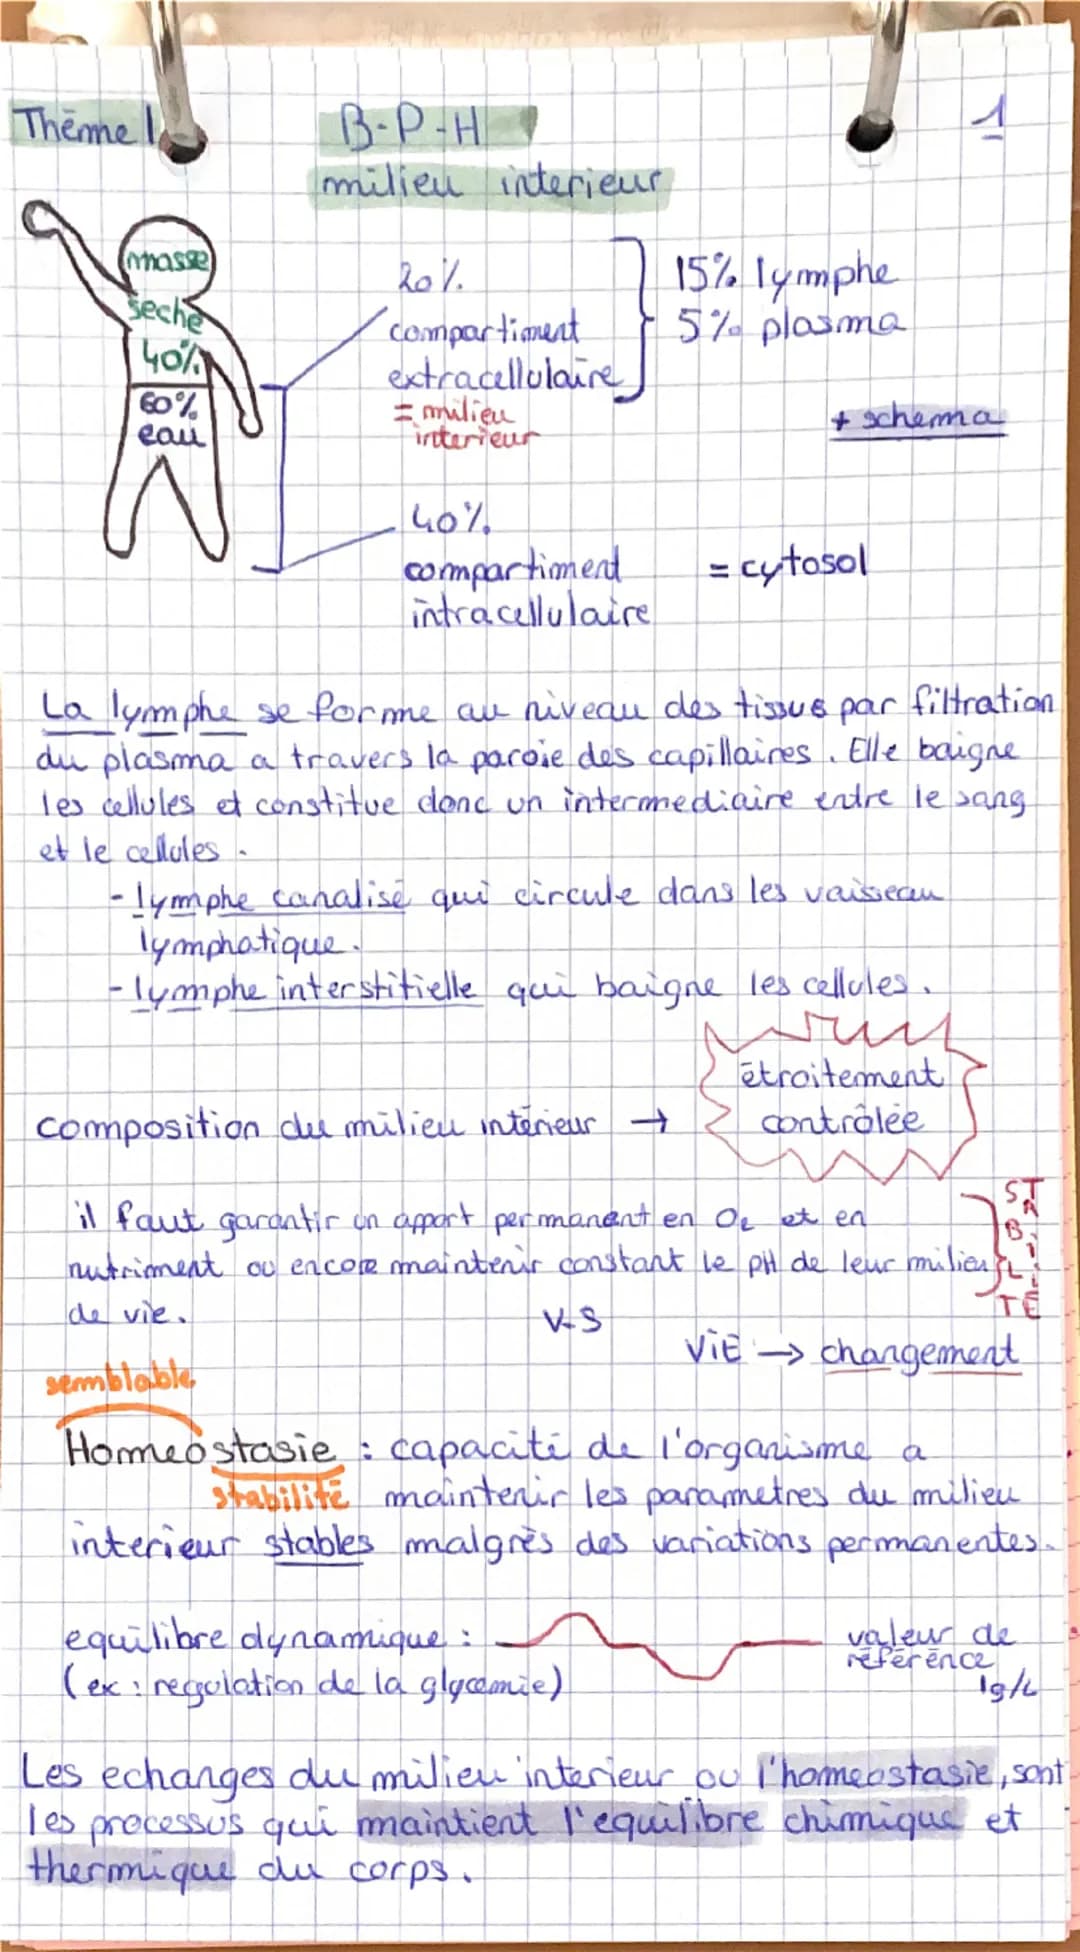 Thème I
B-P-H
1
milieu interieur
masse
seche
40%
60%
eau
20%
compartiment
extracellulaire
= milieu
interieur
15% lymphe
5% plasma
+ schema
40%
compartiment
intracellulaire
= cytosol
La lymphe se forme au niveau des tissus par filtration
du plasma a travers la paroie des capillaires. Elle baigne
les cellules et constitue donc un intermediaire entre le sang
et le cellules.
- lymphe canalisé qui circule dans les vaisseau
lymphatique.
- lymphe interstitielle qui baigne les cellules.
étroitement
contrôlée
composition du milieu intérieur →
il faut garantir un apport permanent en O₂ et en
nutriment ou encore maintenir constant le pH de leur milieu
de vie.
STABILITÉ
V.S
ViE → changement
semblable
Homeostasie : capacité de l'organisme a
stabilité maintenir les parametres du milieu
interieur stables malgrès des variations permanentes.
equilibre dynamique :
valeur de
référence
(ex : regulation de la glycemie)
1g/L
Les echanges du milieu interieur ou l'homeostasie, sont
les processus qui maintient l'equilibre chimique et
thermique du corps.